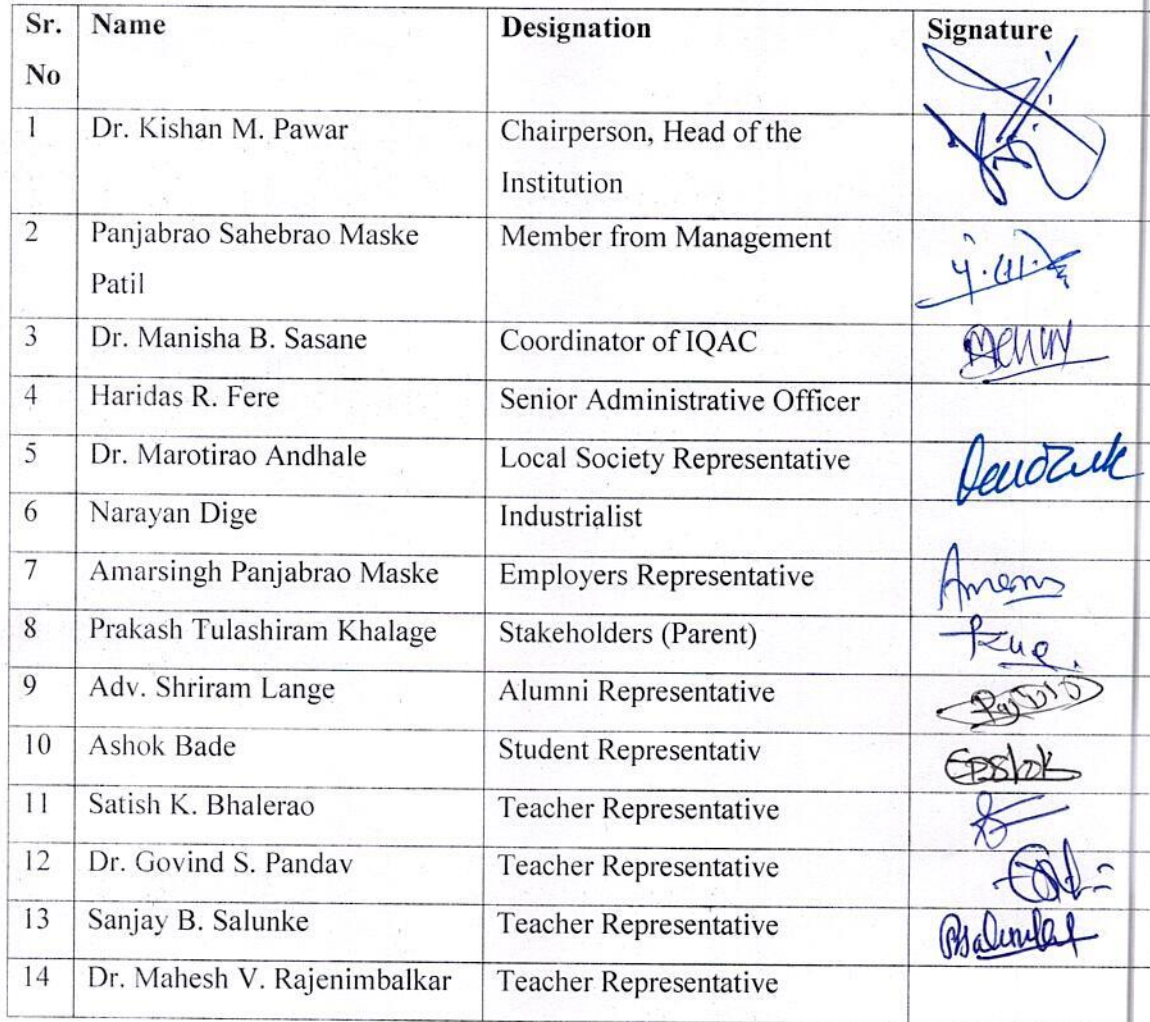 Sr. Name Designation Signature
No
1 Dr. Kishan M. Pawar Chairperson, Head of the
Institution
2 Panjabrao Sahebrao Maske Member from Management
Patil
3 Dr. Manisha B. Sasane Coordinator of IQAC
4 Haridas R. Fere Senior Administrative Officer
5 Dr. Marotirao Andhale Local Society Representative
6 Narayan Dige Industrialist
7 Amarsingh Panjabrao Maske Employers Representative
8 Prakash Tulashiram Khalage Stakeholders (Parent)
9 Adv. Shriram Lange Alumni Representative
10 Ashok Bade Student Representativ
11 Satish K. Bhalerao Teacher Representative
12 Dr. Govind S. Pandav Teacher Representative
13 Sanjay B. Salunke Teacher Representative
14 Dr. Mahesh V. Rajenimbalkar Teacher Representative